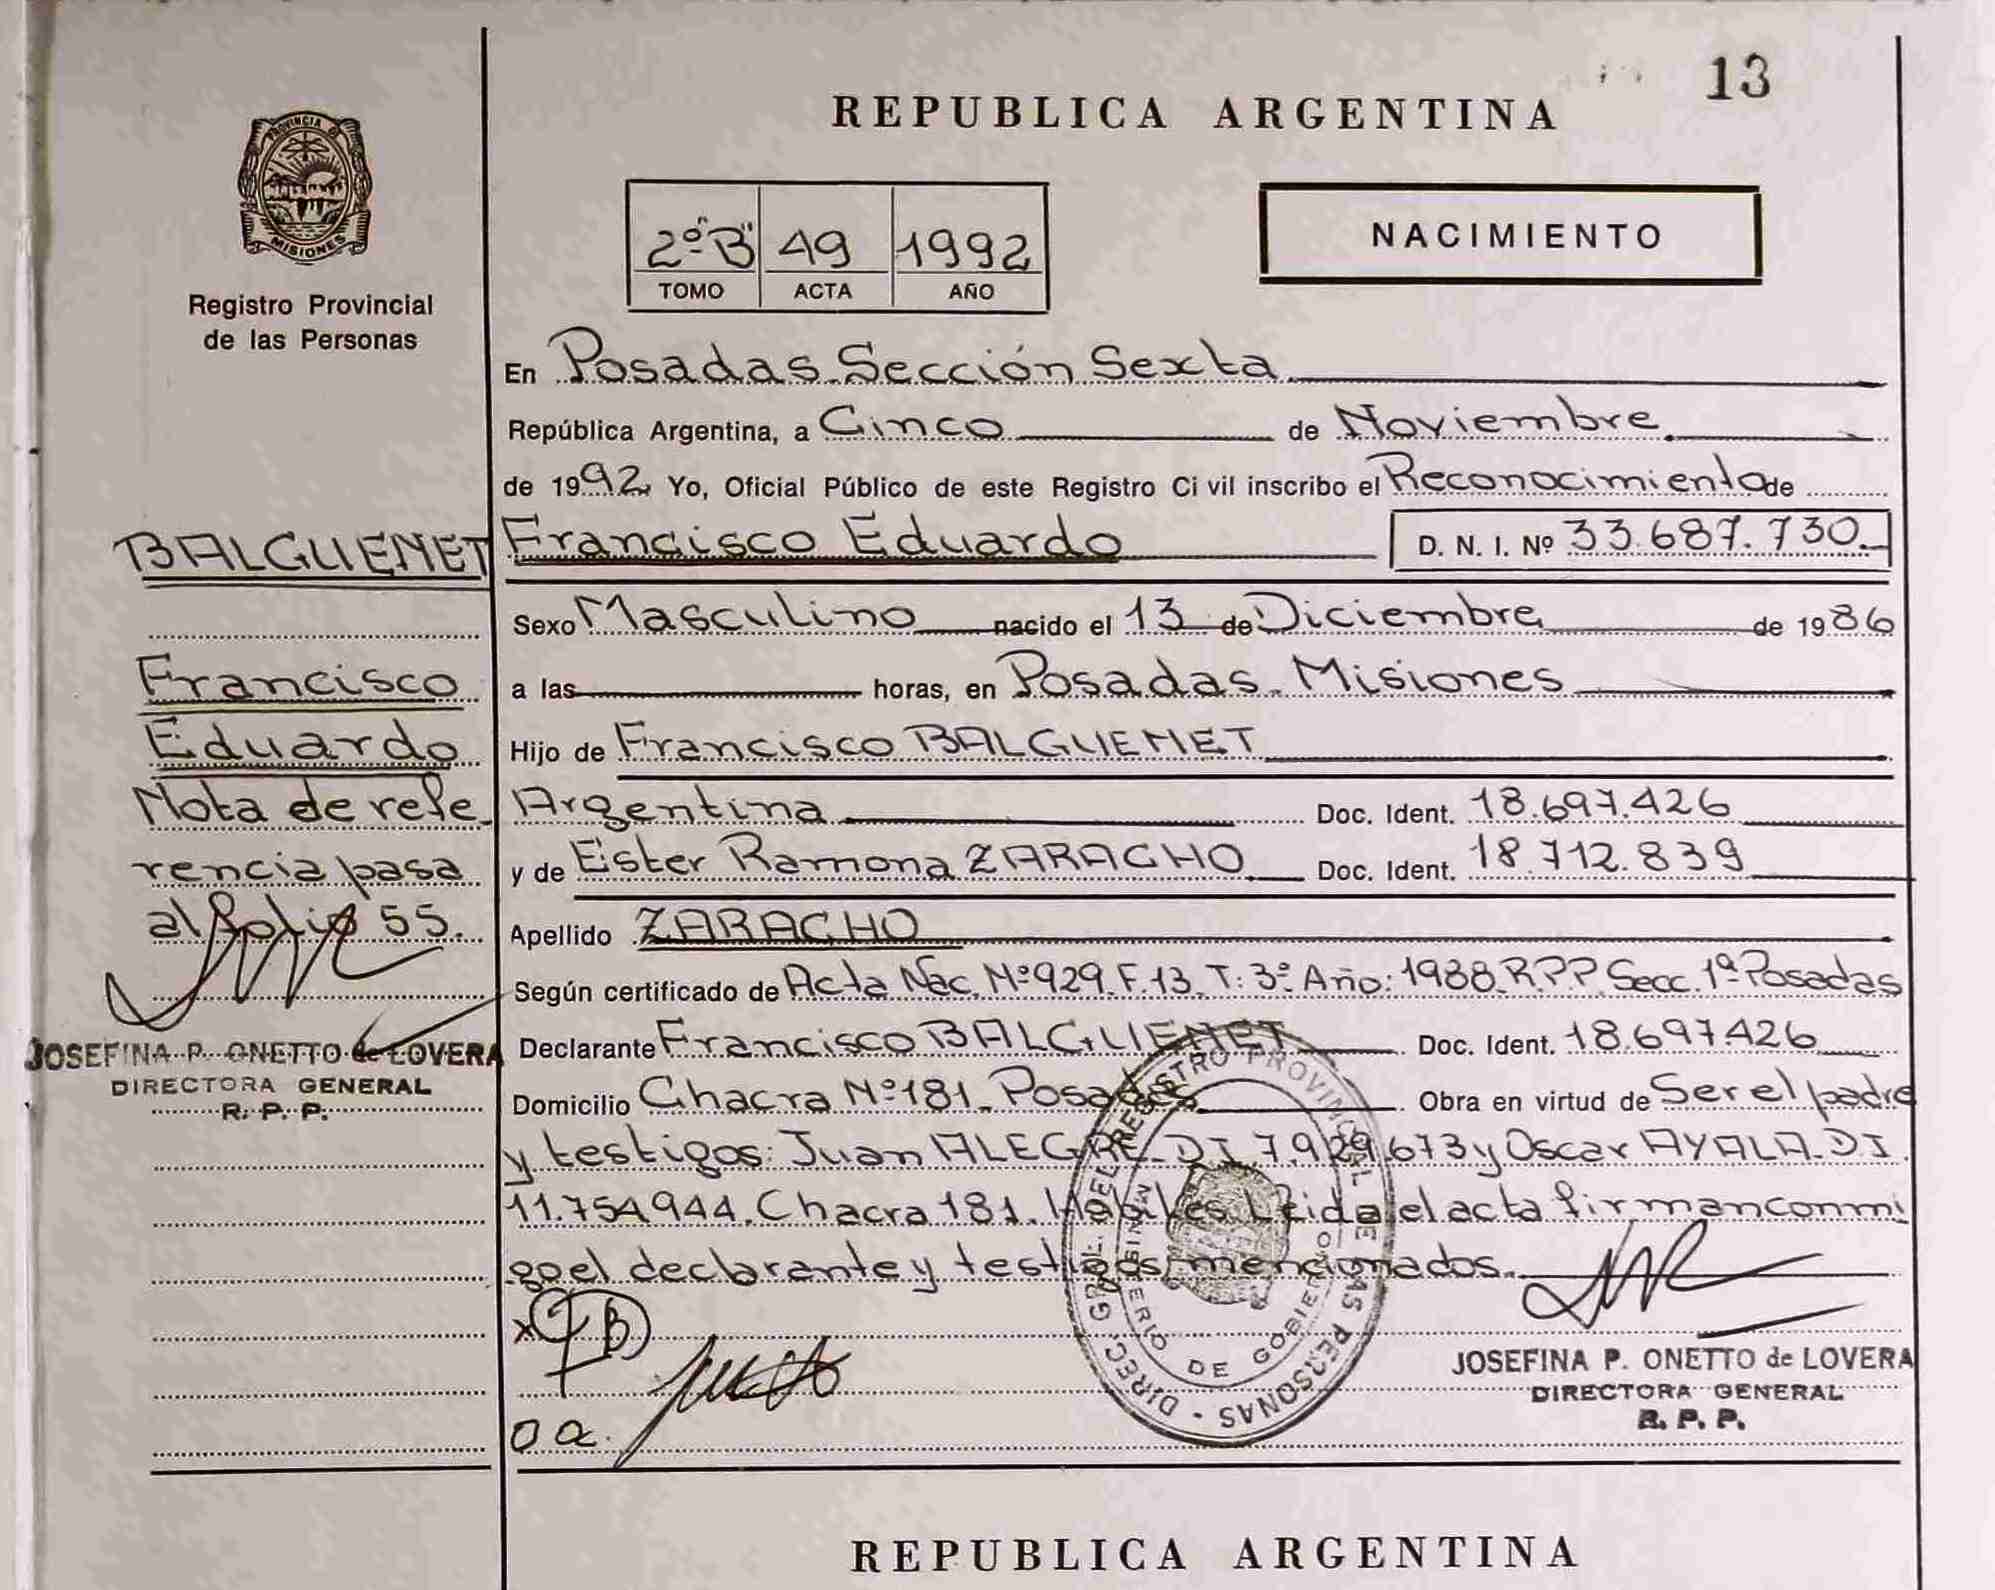 13
REPUBLICA ARGENTINA
PROVINCIA DE
MISIONES
Registro Provincial
de las Personas
2º "B" 49 1992
TOMO ACTA AÑO
NACIMIENTO
En Posadas Sección Sexta
República Argentina, a Cinco de Noviembre
de 1992 Yo, Oficial Público de este Registro Civil inscribo el Reconocimiento de
Francisco Eduardo D. N. I. Nº 33.687.730.
Sexo Masculino nacido el 13 de Diciembre de 1986
a las horas, en Posadas Misiones
Hijo de Francisco BALGUENET
Argentina Doc. Ident. 18.697.426
y de Ester Ramona ZARACHO Doc. Ident. 18.712.839
Apellido ZARACHO
Según certificado de Acta Nac. Nº 929. F. 13. T: 3º Año: 1988. R.P.P. Secc. 1ª Posadas
Declarante Francisco BALGUENET Doc. Ident. 18.697.426
Domicilio Chacra Nº 181. Posadas Obra en virtud de Ser el padre
y testigos: Juan ALEGRE. DI 7.929.673 y Oscar AYALA. DI.
11.754.944. Chacra 181. Hábiles. Leída el acta firman conmi
go el declarante y testigos mencionados.
JOSEFINA P. ONETTO de LOVERA
DIRECTORA GENERAL
R. P. P.
BALGUENET
Francisco
Eduardo
Nota de refe
rencia pasa
al folio 55.
JOSEFINA P. ONETTO de LOVERA
DIRECTORA GENERAL
R. P. P.
DIREC. GRAL. DEL REGISTRO PROVINCIAL DE LAS PERSONAS
MINISTERIO DE GOBIERNO
O a.
REPUBLICA ARGENTINA